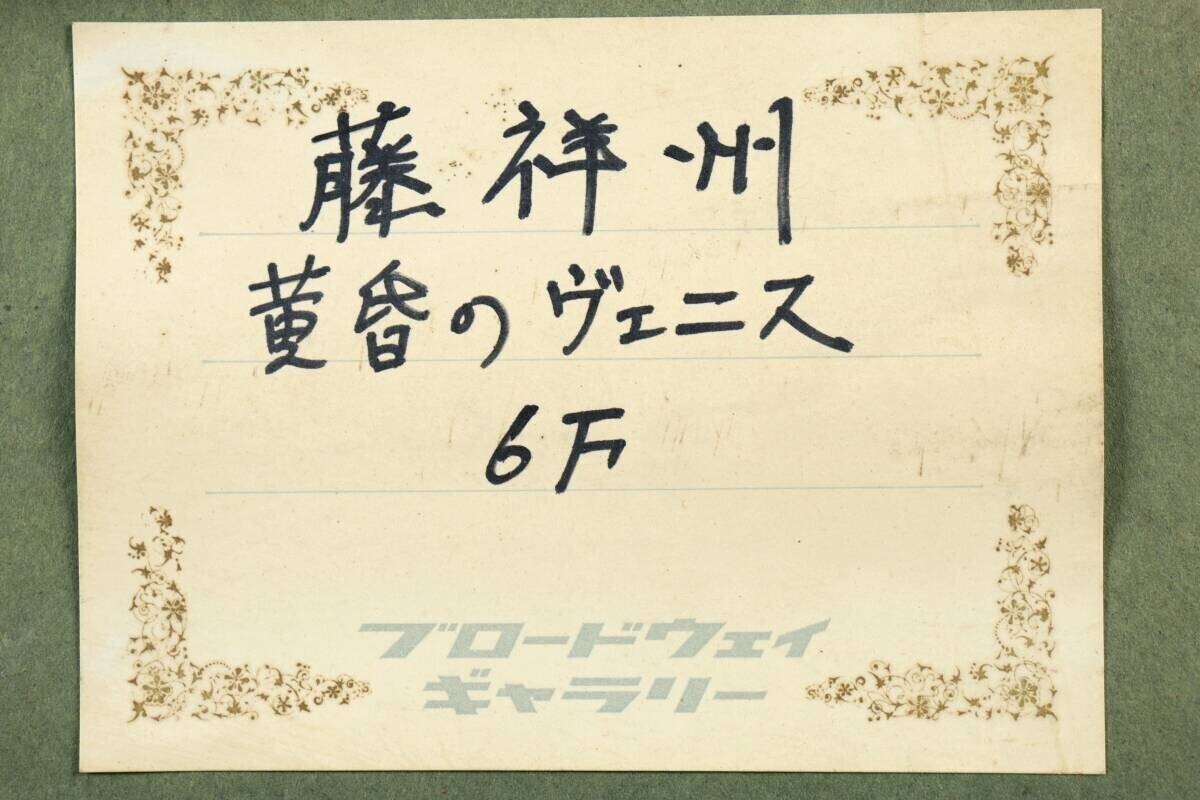 藤祥州
黄昏のヴェニス
6万
ブロードウェイ
ギャラリー